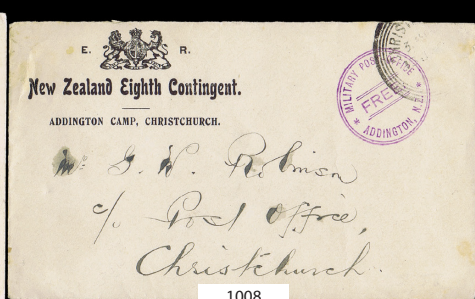 E. R.
New Zealand Eighth Contingent.
ADDINGTON CAMP, CHRISTCHURCH.
MILITARY POS
FREE
* ADDINGTON, N.Z. *
Mr. G. W. Robinson
c/o Post Office,
Christchurch.
1008